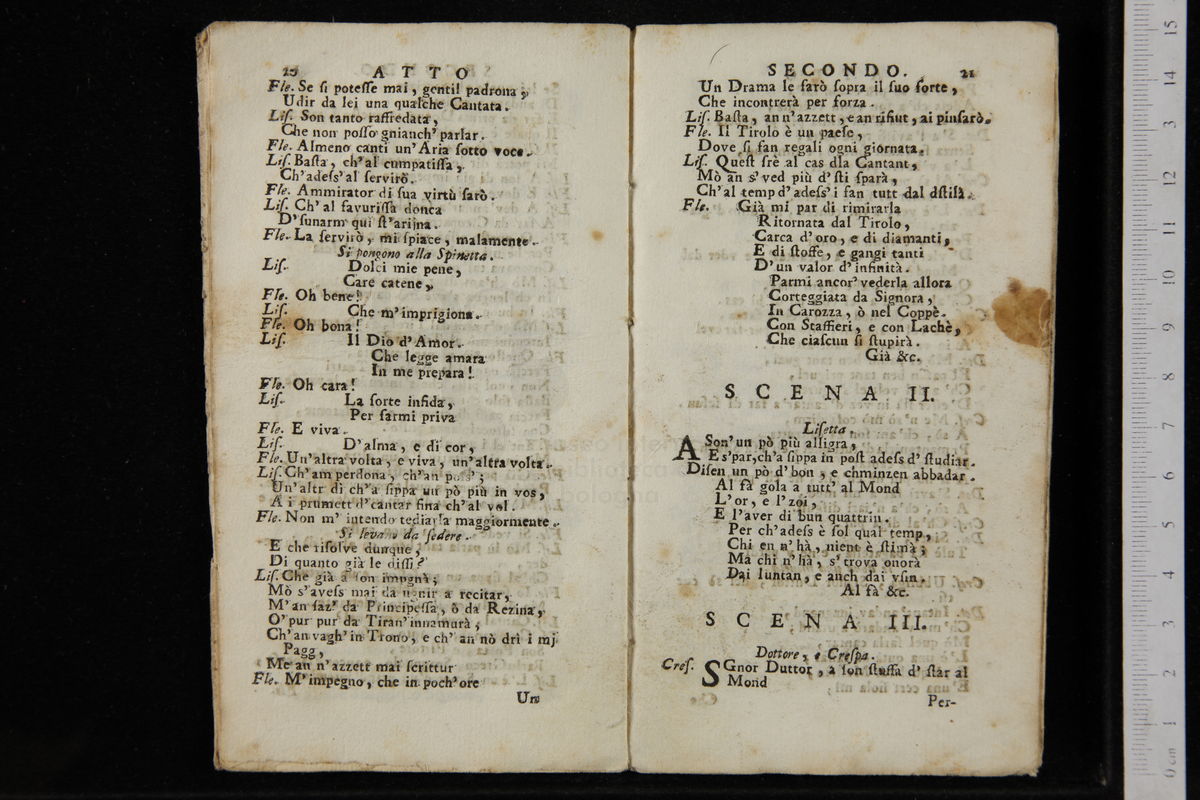 20 ATTO
Fle. Se si potesse mai, gentil padrona,
Udir da lei una qualche Cantata.
Lis. Son tanto raffredata,
Che non posso gnianch' parlar.
Fle. Almeno canti un'Aria sotto voce.
Lis. Basta, ch'al cumpatissa,
Ch'adess'al servirò.
Fle. Ammirator di sua virtù sarò.
Lis. Ch' al favurissa donca
D'sunarm qui st'arijna.
Fle. La servirò, mi spiace, malamente.
Si pongono alla Spinetta.
Lis. Dolci mie pene,
Care catene,
Fle. Oh bene!
Lis. Che m'imprigiona.
Fle. Oh bona!
Lis. Il Dio d'Amor.
Che legge amara
In me prepara!
Fle. Oh cara!
Lis. La sorte infida,
Per farmi priva
Fle. E viva.
Lis. D'alma, e di cor,
Fle. Un'altra volta, e viva, un'altra volta.
Lis. Ch'am perdona, ch'an poss';
Un'altr di ch'a sippa un pò più in vos,
A i prumett d'cantar fina ch'al vol.
Fle. Non m' intendo tediarla maggiormente.
Si levano da sedere.
E che risolve dunque,
Di quanto già le dissi?
Lis. Che già a son impgnà;
Mò s'avess mai da vgnir a recitar,
M'an faz' da Principessa, ò da Rezina,
O'pur pur da Tiran'innamurà;
Ch'an vagh'in Trono, e ch' an nò dri i mj
Pagg,
Me an n'azzett mai scrittur
Fle. M'impegno, che in poch'ore
Un
SECONDO. 21
Un Drama le farò sopra il suo forte,
Che incontrerà per forza.
Lis. Basta, an n'azzett, e an rifiut, ai pinsarò.
Fle. Il Tirolo è un paese,
Dove si fan regali ogni giornata.
Lis. Quest srè al cas dla Cantant,
Mò an s'ved più d'sti sparà,
Ch'al temp d'adess'i fan tutt dal dstisà.
Fle. Già mi par di rimirarla
Ritornata dal Tirolo,
Carca d'oro, e di diamanti,
E di stoffe, e gangi tanti
D'un valor d'infinità.
Parmi ancor'vederla allora
Corteggiata da Signora,
In Carozza, ò nel Coppè.
Con Staffieri, e con Lachè,
Che ciascun si stupirà.
Già &c.
SCENA II.
Lisetta.
A Son'un pò più alligra,
E s'par, ch'a sippa in post adess d' studiar.
Disen un pò d'bon, e chminzen abbadar.
Al fà gola a tutt' al Mond
L'or, e l'zoi,
E l'aver di bun quattrin.
Per ch'adess è sol qual temp,
Chi en n'hà, nient è stimà;
Ma chi n'hà, s'trova onorà
Dai luntan, e anch dai vsin.
Al fà &c.
SCENA III.
Dottore, e Crespa.
Cres. SGnor Duttor, a son stuffa d' star al
Mond
Per-